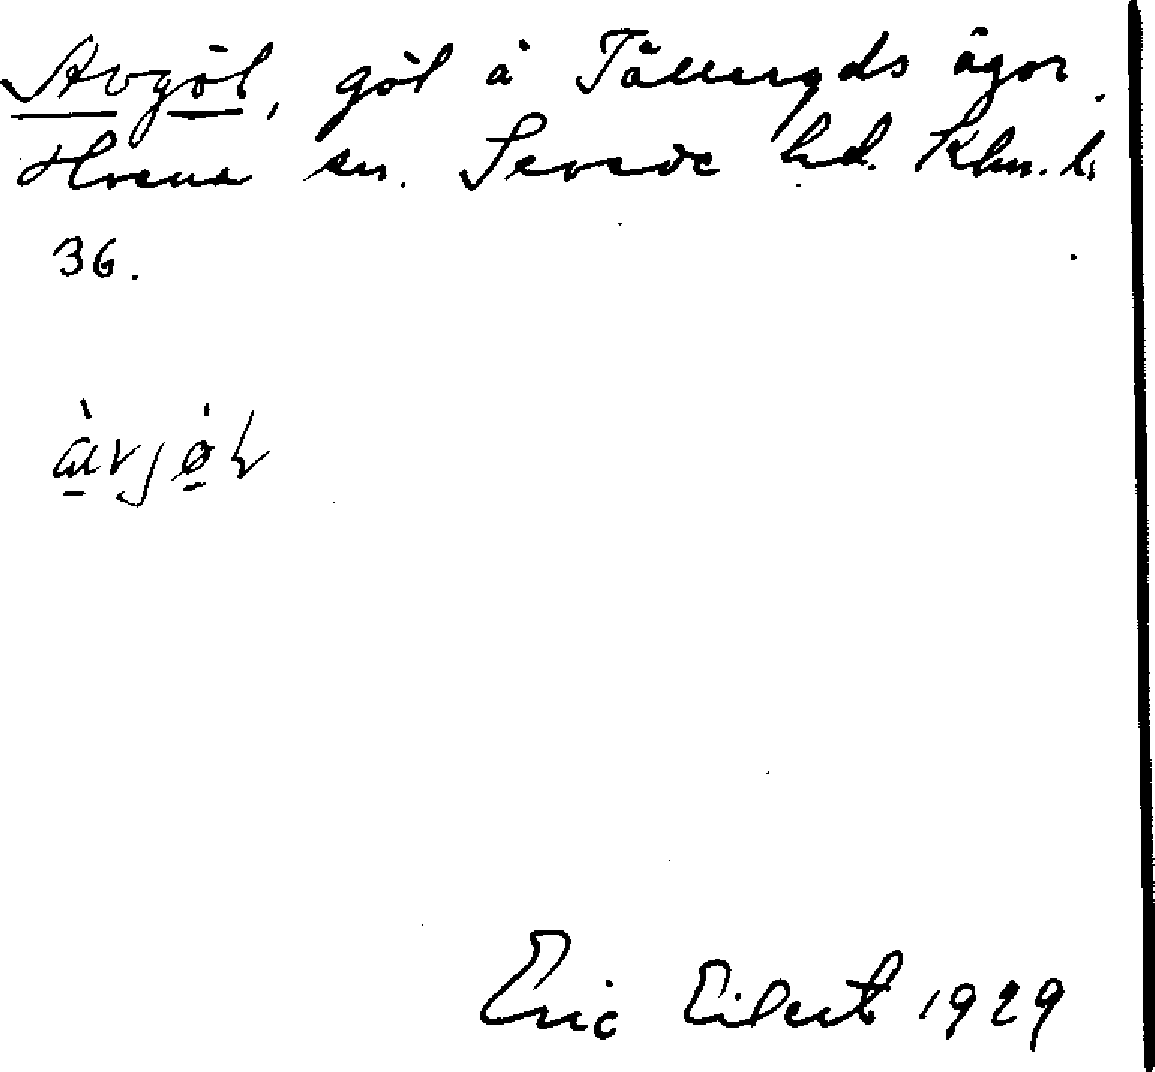 Avgöl, göl å Tälleryds ägor.
Hvena sn. Sevede hd. Klm. l.
36.
Eric Eilert 1929